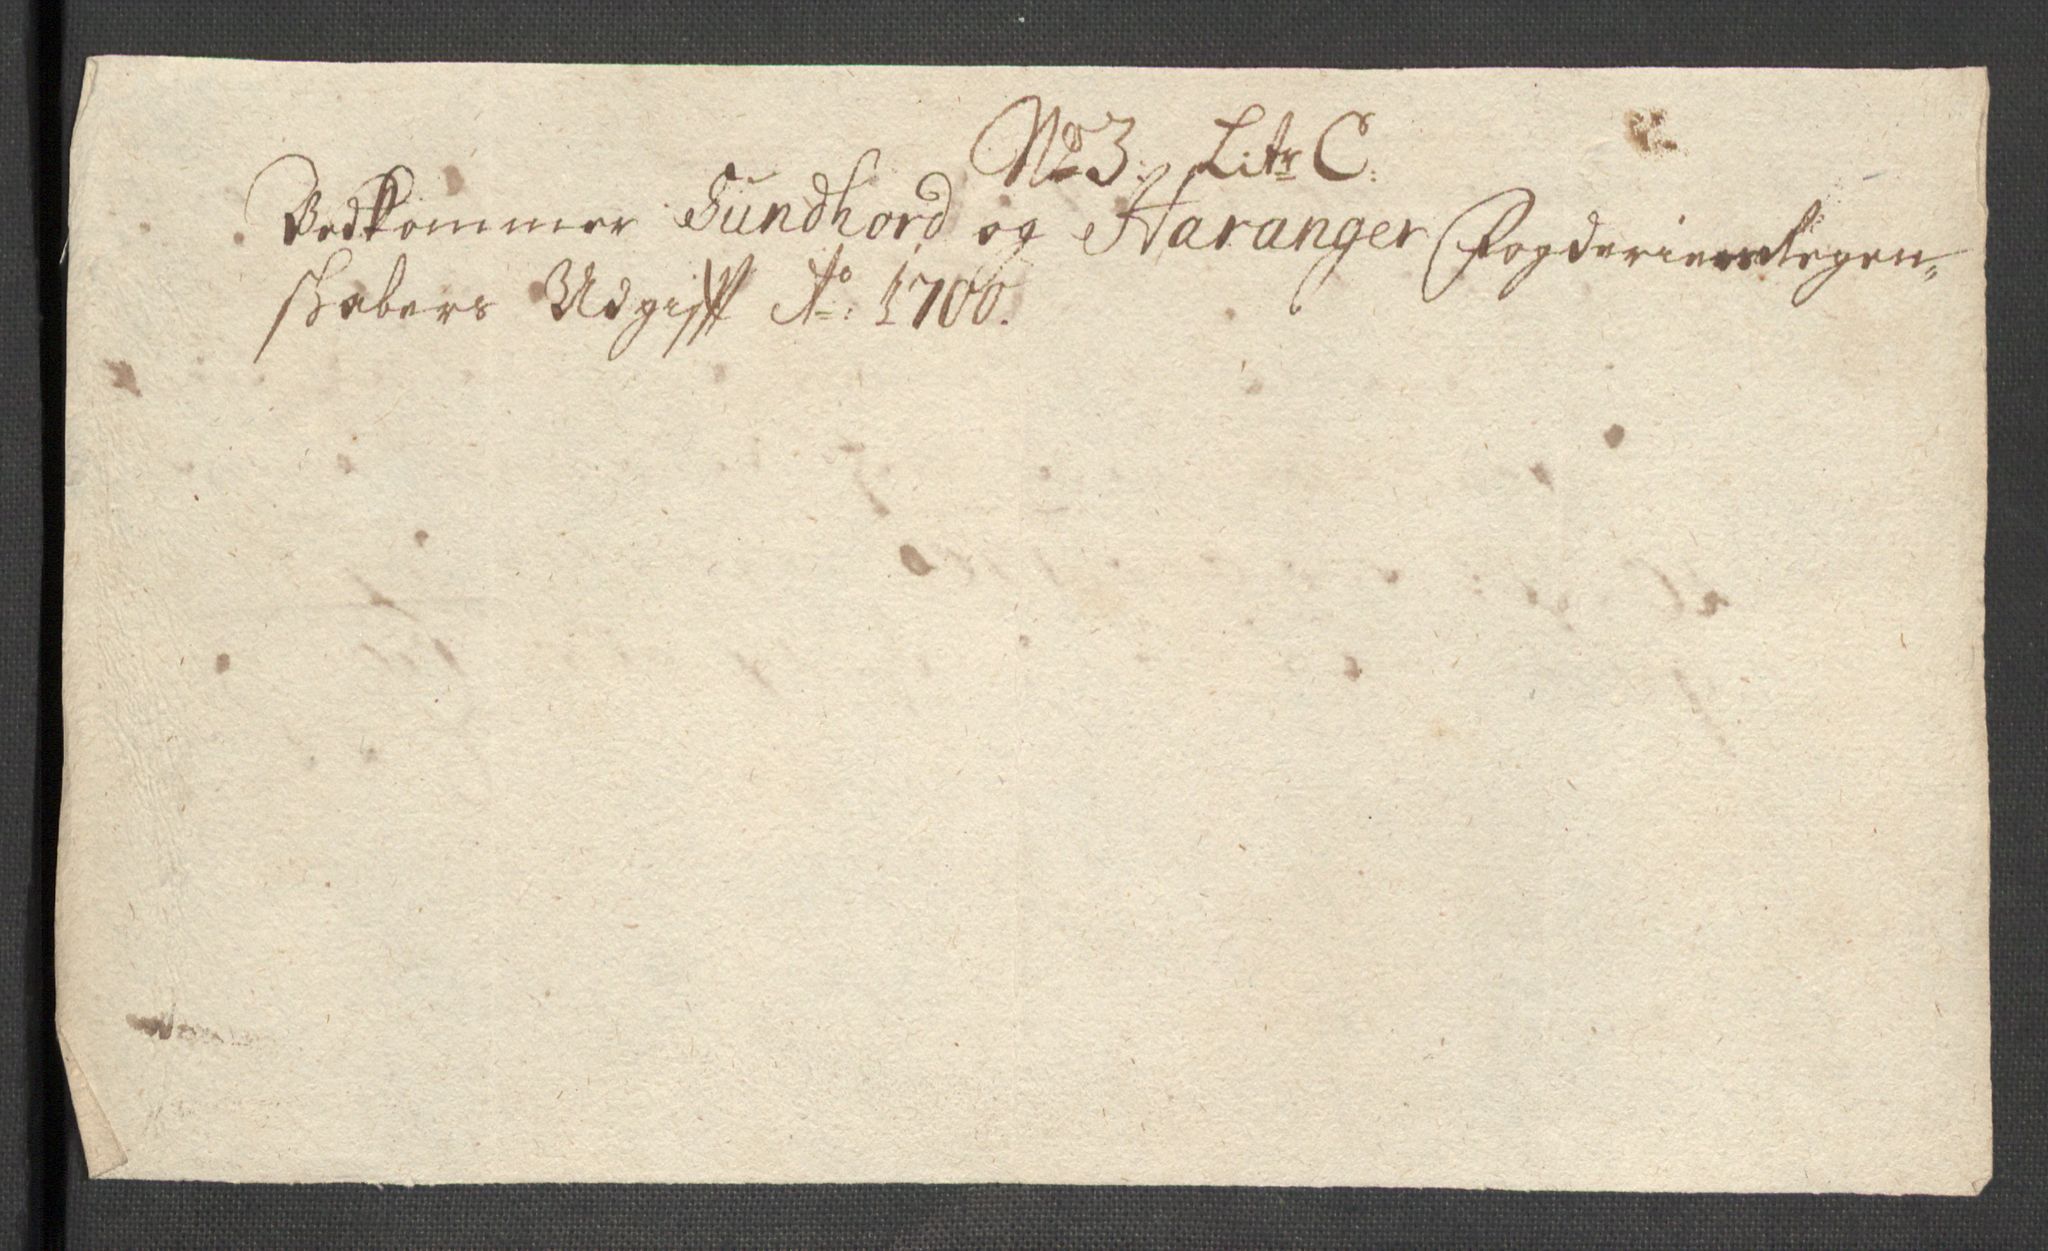 No 3. Litr C:
Vedkommer Sundhord og Haranger Fogderiers Regen=
skabers Udgifft Ao: 1700.